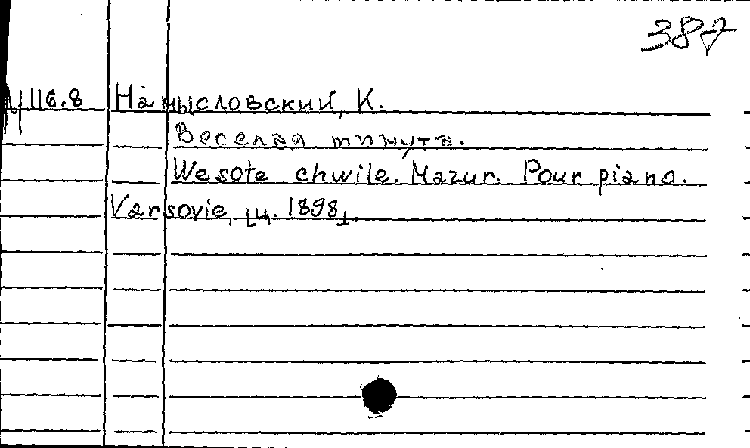 387
116.8 Намысловский, К.
Веселая минута.
Wesołe chwile. Mazur. Pour piano.
Varsovie, [ц. 1898].